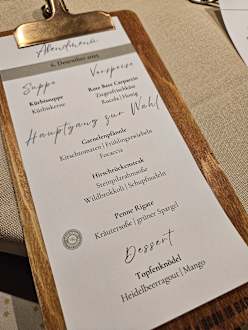 Abendmenü
6. Dezember 2025
Suppe
Vorspeise
Kürbissuppe
Kürbiskerne
Rote Bete Carpaccio
Ziegenfrischkäse
Rucola | Honig
Hauptgang zur Wahl
Garnelenpfanne
Kirschtomaten | Frühlingszwiebeln
Focaccia
Hirschrückensteak
Steinpilzrahmsoße
Wildbrokkoli | Schupfnudeln
Penne Rigate
Kräutersoße | grüner Spargel
Dessert
Topfenknödel
Heidelbeerragout | Mango